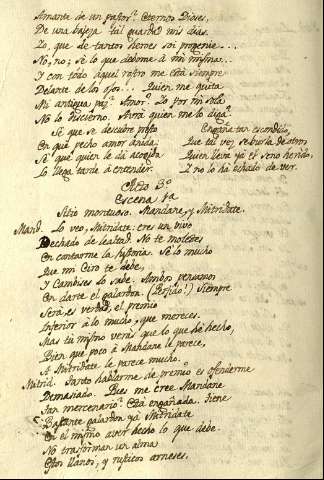 Amante de un pastor? Eternos Dioses,
De una bajeza tal guardad mis dias.
Yo, que de tantos heroes soi progenie...
No, no; se lo que debome à mi misma.
Y con todo aquel rostro me està siempre
Delante de los ojos... Quien me quita
Mi antigua paz? Amor? Lo por mi sola
No lo discierno. Avrà quien me lo diga?
Se que se descubre presto
En què pecho amor anida.
Sè que quien le dà acogida
Lo llega tarde à entender.
Engaña tan escondido,
Que tal vez se burla de otros,
Quien lleva yà el seno herido,
I no lo hà echado de ver.
Acto 3º
Escena 1ª
Sitio montuoso. Mandane, y Mitridate.
Mand. Lo veo, Mitridate: eres un vivo
Dechado de lealtad. No te molestes
En contarme la historia. Sè lo mucho
Que mi Ciro te debe,
Y Cambises lo sabe. Ambos pensamos
En darte el galardon. (Perfido!) Siempre
Serà es verdad, el premio
Inferior à lo mucho, que mereces.
Mas tù mismo veràs que lo que hè hecho,
Bien que poco à Mandane le parece,
A Mitridate le parece mucho.
Mitrid. Tanto hablarme de premio es ofenderme
Demasiado. Pues me cree Mandane
Tan mercenario? Està engañada. Tiene
Bastante galardon yà Mitridate
En el mismo aver hecho lo que debe.
No trasforman un alma
Estos llanos, y rusticos arneses.